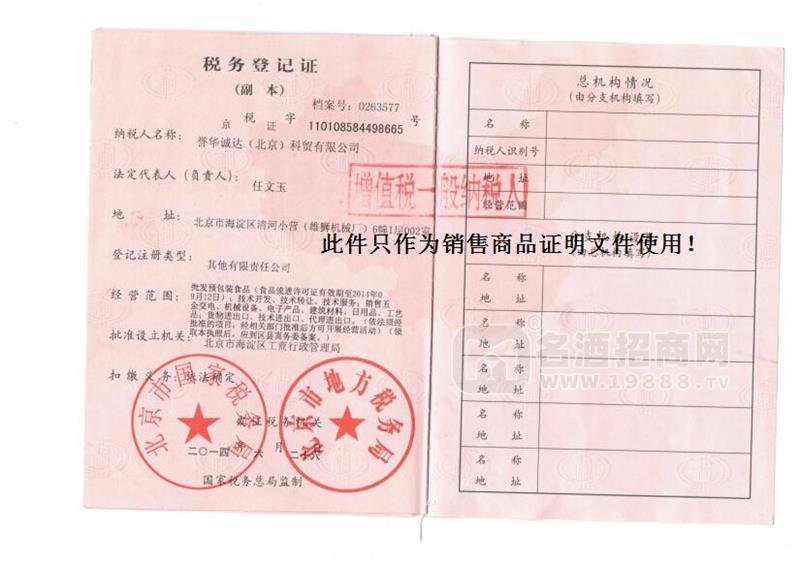 税务登记证
(副 本)
档案号: 0263577
京 税 证 字 110108584498665 号
纳税人名称: 誉华诚达（北京）科贸有限公司
法定代表人（负责人）: 任文玉
地 址: 北京市海淀区清河小营（雄狮机械厂）6幢1层002室
登记注册类型: 其他有限责任公司
经营范围: 批发预包装食品（食品流通许可证有效期至2014年0
9月12日）；技术开发、技术转让、技术服务；销售五
金交电、机械设备、电子产品、建筑材料、日用品、工艺
品；货物进出口、技术进出口、代理进出口。（依法须经
批准的项目，经相关部门批准后方可开展经营活动）（领
取本执照后，应到区县商务委备案。）
批准设立机关: 北京市海淀区工商行政管理局
扣缴义务: 依法确定
北京市国家税务局
北京市地方税务局
发证税务机关
二〇一四 年 六 月 二十六 日
国家税务总局监制
增值税一般纳税人
此件只作为销售商品证明文件使用！
总机构情况
(由分支机构填写)
名 称
纳税人识别号
地 址
经营范围
分支机构设置
(由总机构填写)
名 称
地 址
名 称
地 址
名 称
地 址
名 称
地 址
名 称
地 址
名酒招商网
®
www.19888.TV